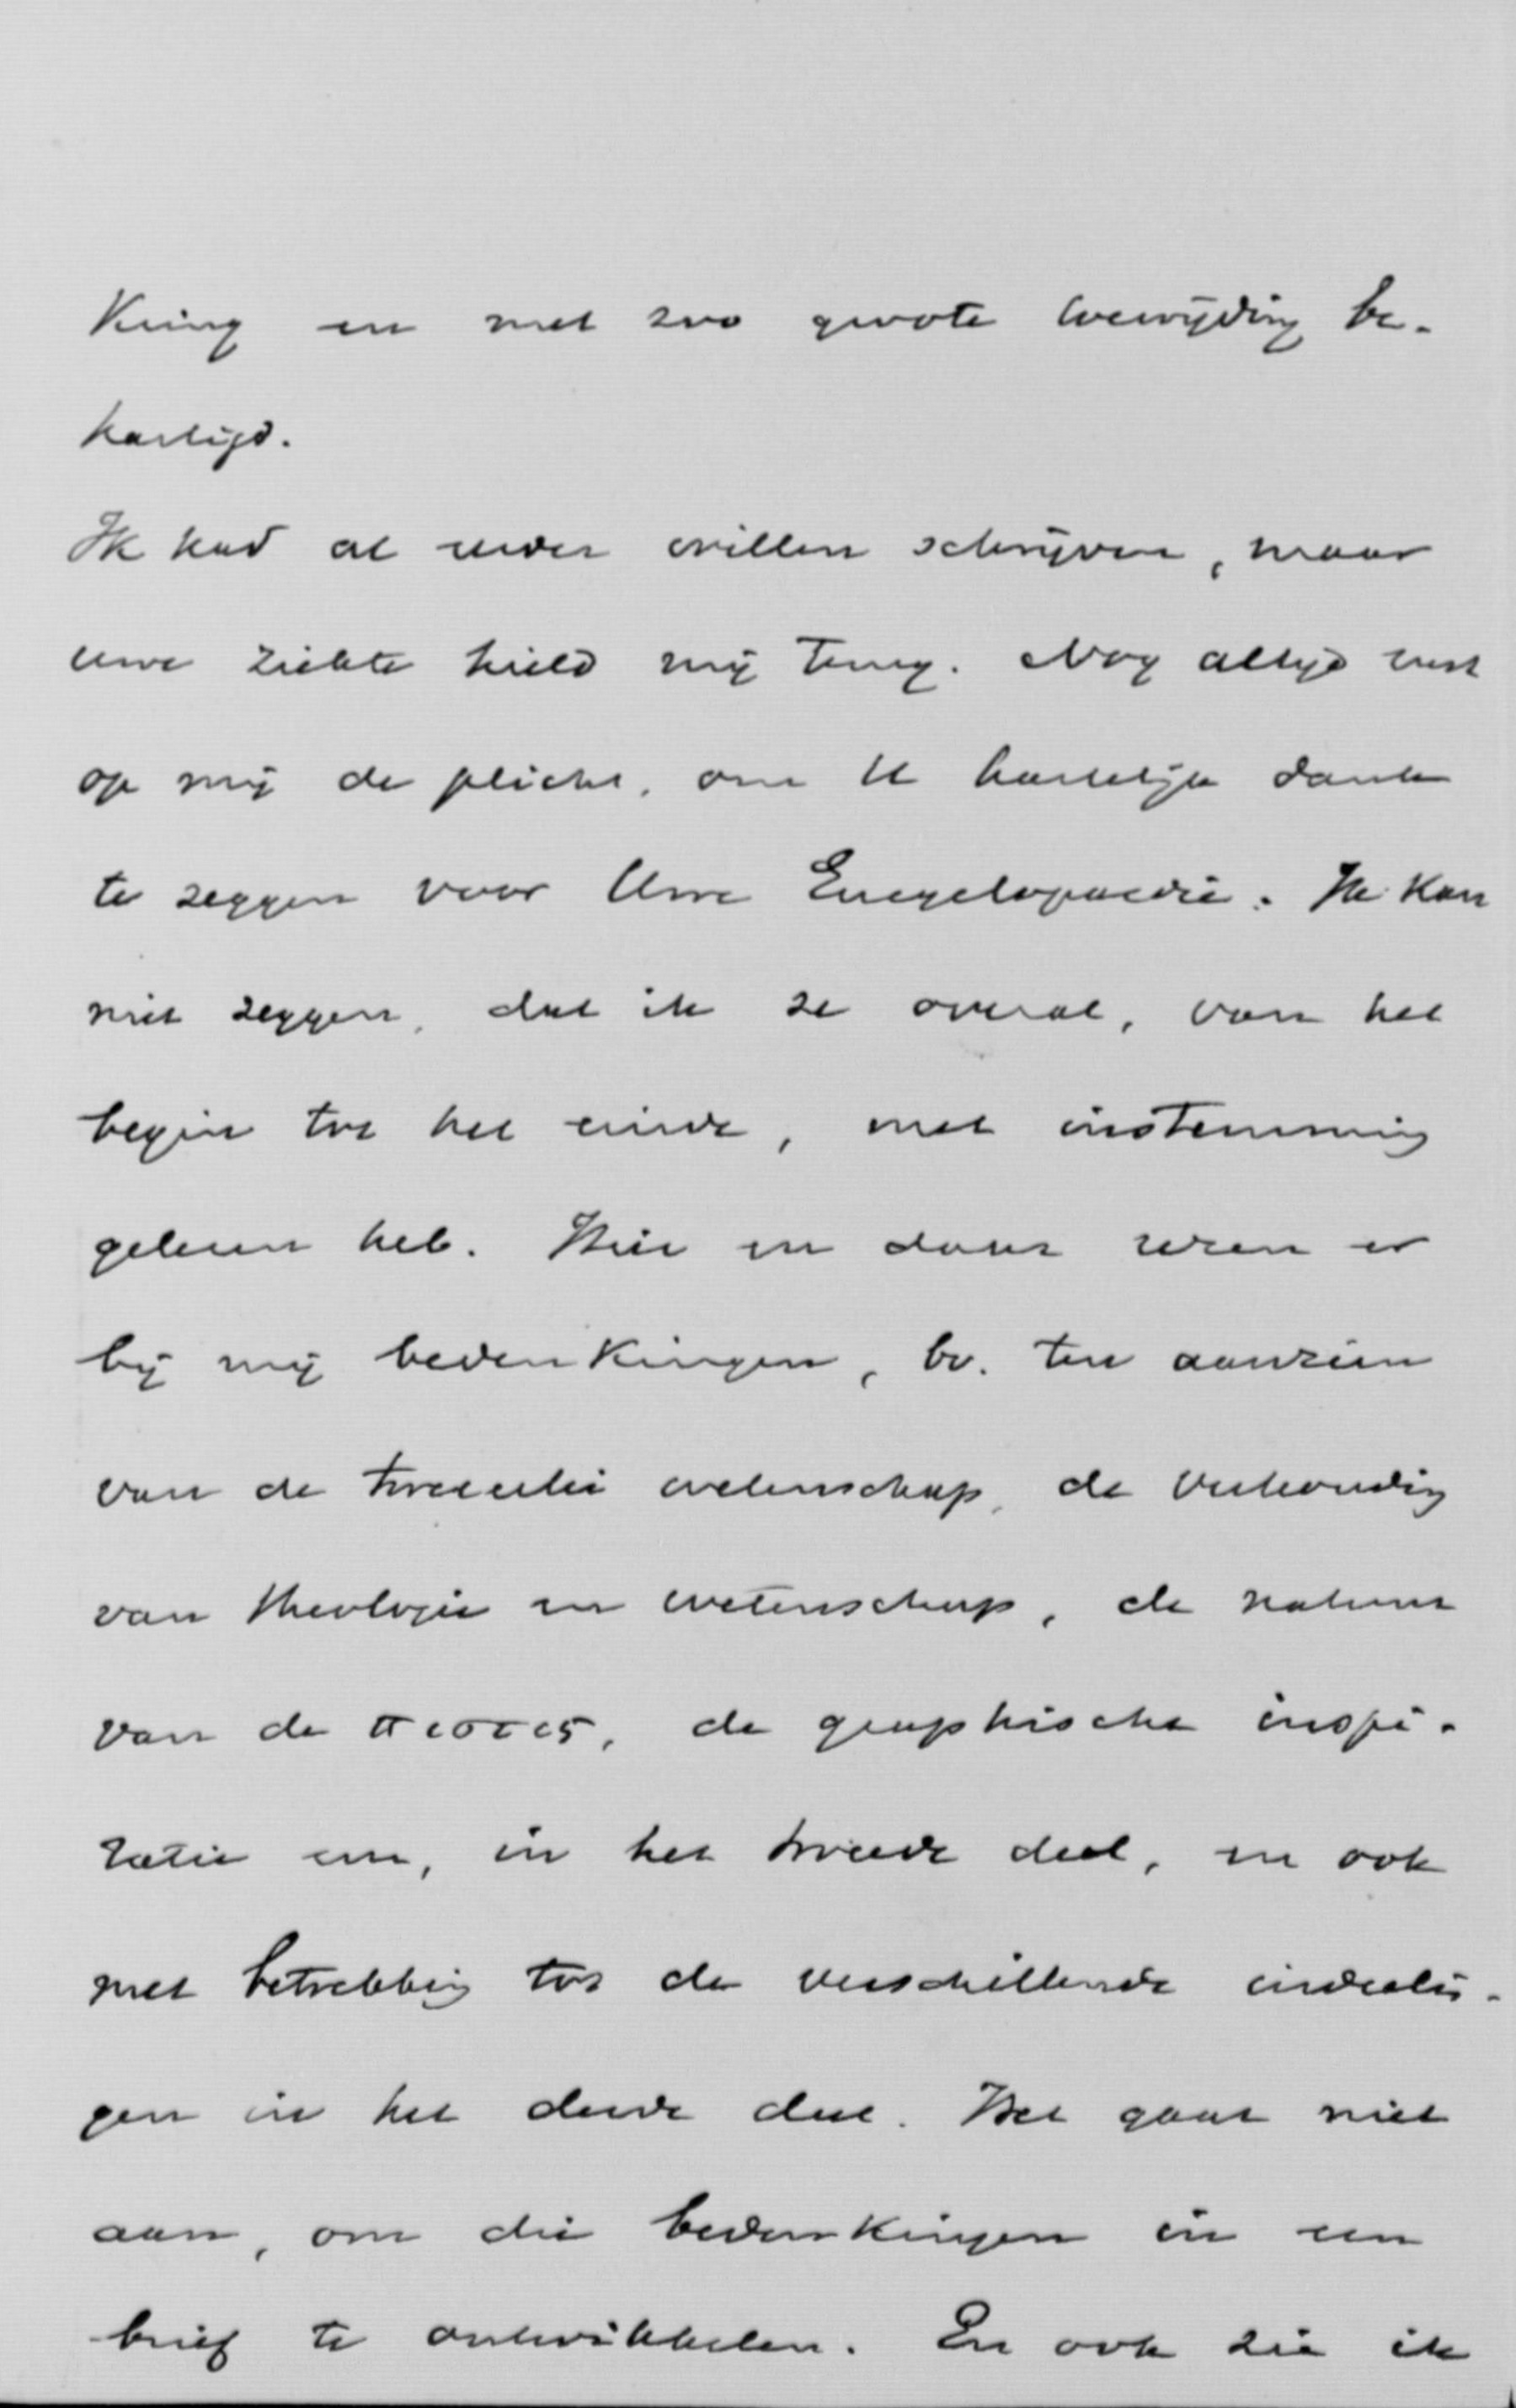 king en met zoo groote toewijding be-
hartigd.
Ik had al eerder willen schrijven, maar
uwe ziekte hield mij terug. Nog altijd rust
op mij de plicht, om U hartelijk dank
te zeggen voor Uwe Encyclopaedie. Ik kan
niet zeggen, dat ik ze overal, van het
begin tot het einde, met instemming
gelezen heb. Hier en daar rezen er
bij mij bedenkingen, bv. ten aanzien
van de tweeerlei wetenschap, de verhouding
van theologie en wetenschap, de natuur
van de πιστις, de graphische inspi-
ratie enz, in het tweede deel, en ook
met betrekking tot de verschillende indeelin-
gen in het derde deel. Het gaat niet
aan, om die bedenkingen in een
brief te ontwikkelen. En ook zie ik